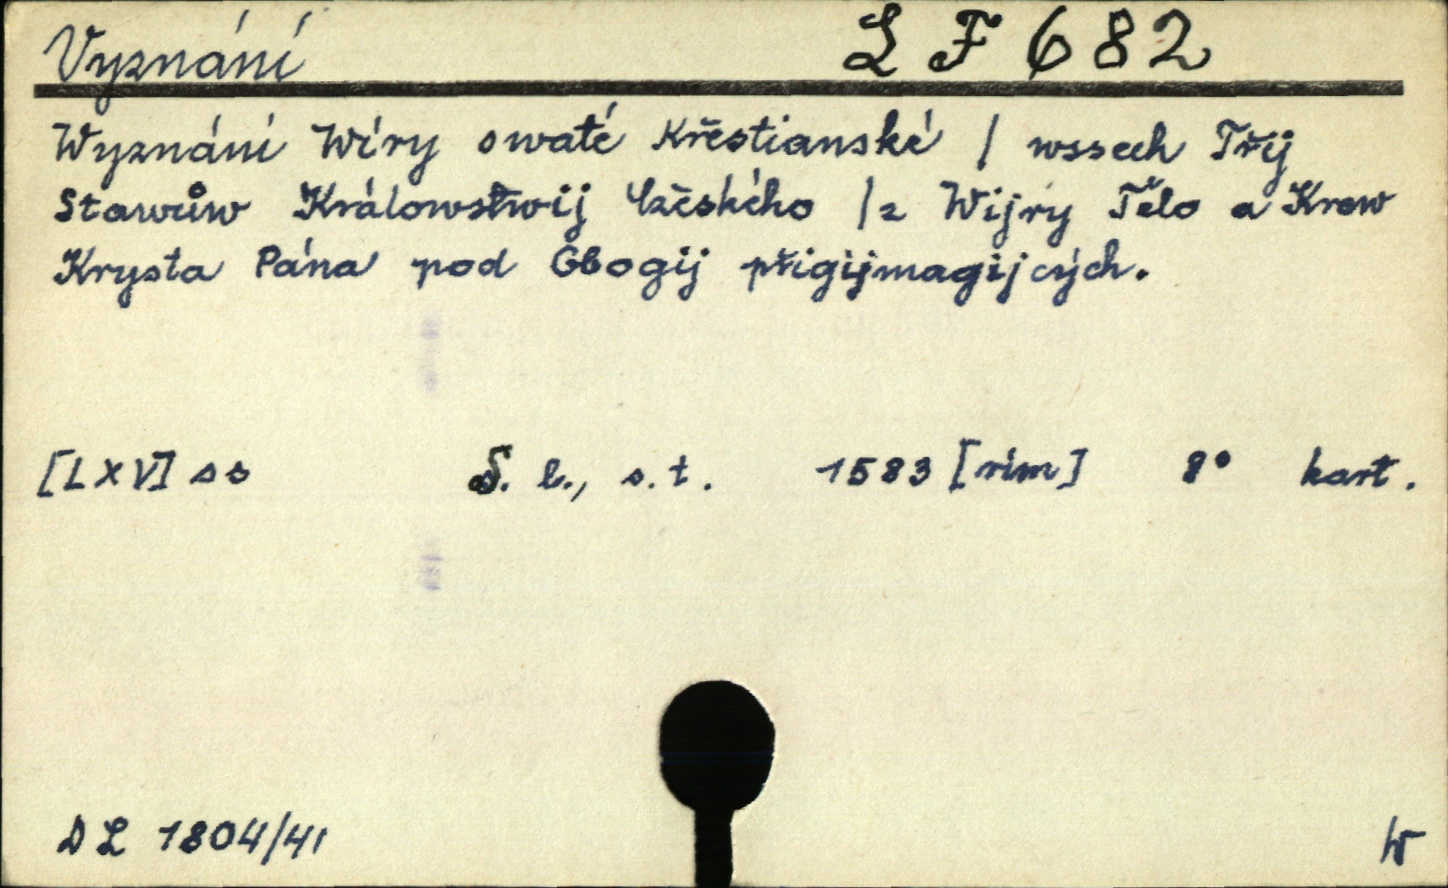 Vyznání LF 682
Wyznání Wíry swaté Křestianské / wssech Třij
Stawůw Králowstwij Cžěského / z Wijry Tělo a Krew
Krysta Pána pod Obogij přigijmagijcých.
[LXV] ss S. l., s.t. 1583 [rim] 8° kart.
DL 1804/41 W